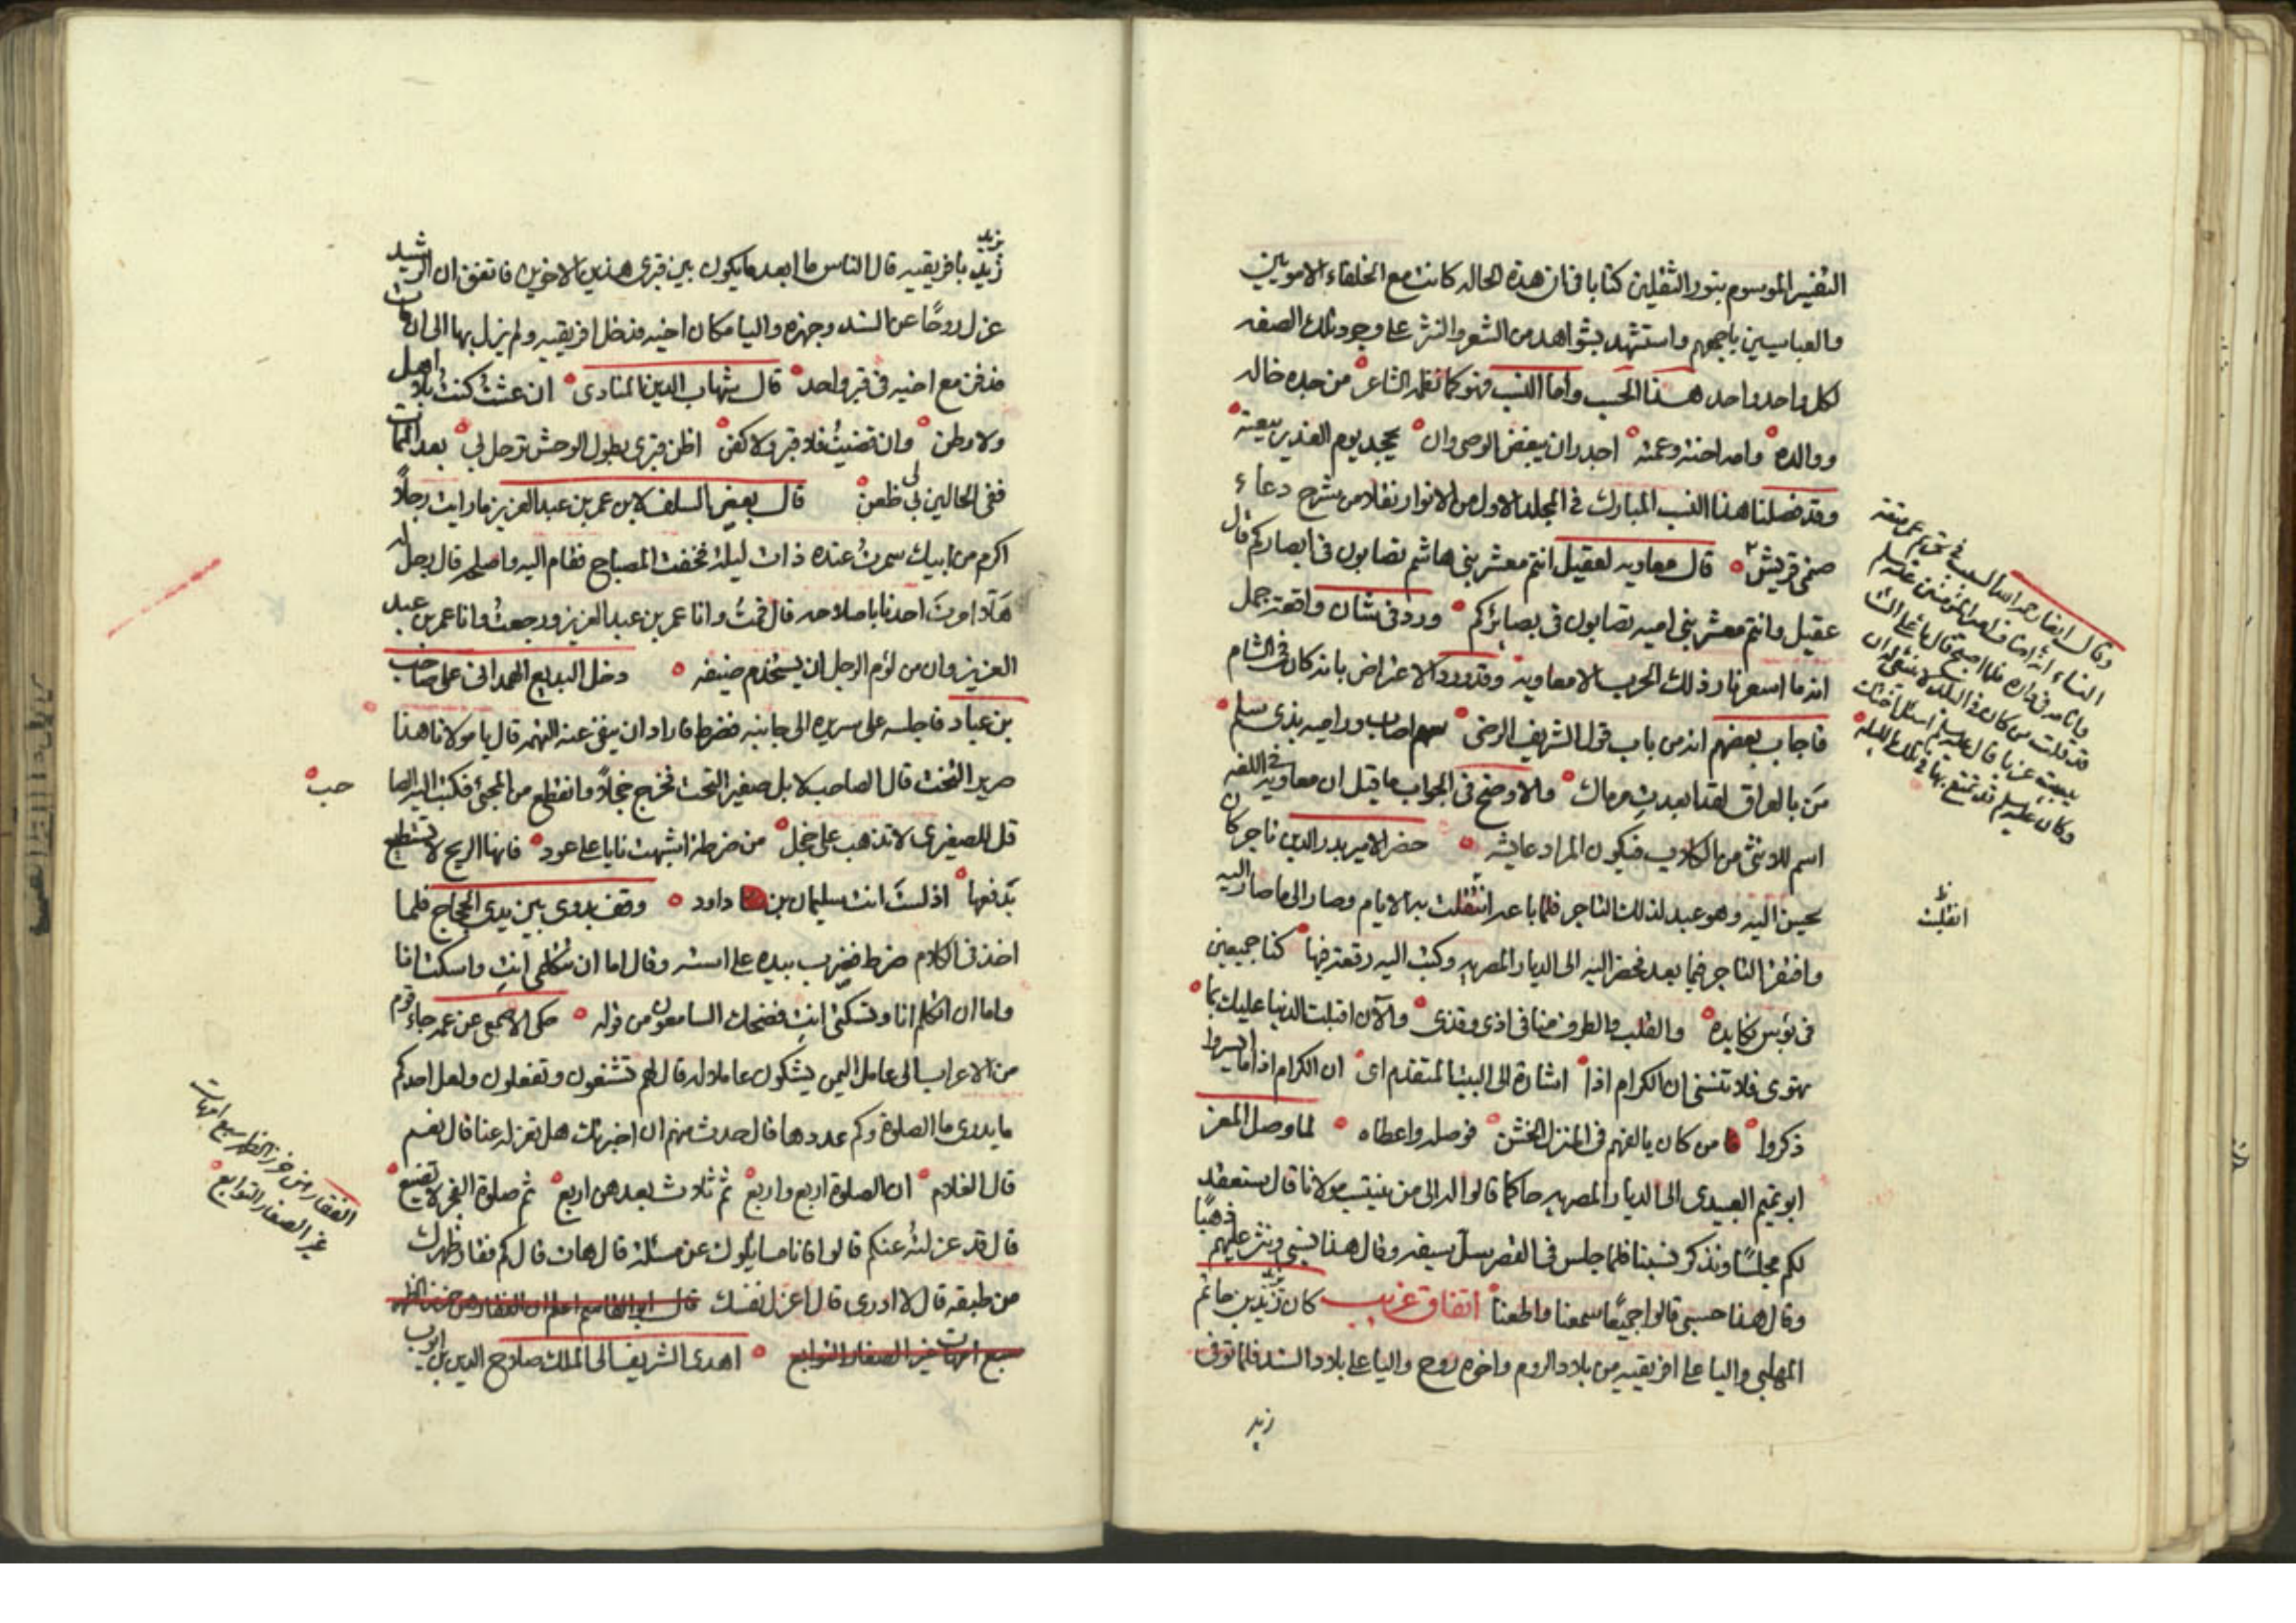 التفسير الموسوم بنور الثقلين كتابا في ان هذه الحاله كانت مع الخلفاء الامويين
والعباسيين باجمعهم واستشهد بشواهد من الشعر والنثر على وجود تلك الصفه
لكل واحد واحد هذا الحسب واما النسب فهو كما نظمه الشاعر من جده خاله
ووالده وامه اخته وعمته اجدر ان يبغض الوصى وان يجحد يوم الغدير بيعته
وقد فصلنا هذا النسب المبارك في المجلد الاول من الانوار نقلا من شرح دعاء
صنمى قريش قال معاويه لعقيل انتم معشر بنى هاشم تصابون في ابصاركم قال
عقيل وانتم معشر بنى اميه تصابون في بصائركم وورد في شان واقعة جمل
انه ما اسعر نار ذلك الحرب الا معاويه وقد ورد الاعتراض بانه كان في الشام
فاجاب بعضهم انه من باب قول الشريف الرضى سهم اصاب وراميه بذى سلم
من بالعراق لقد ابعدت مرماك والاوضح في الجواب ما قيل ان معاويه في اللغه
اسم للانثى من الكلاب فيكون المراد عايشه حضر الامير بدر الدين تاجر كان
يحسن اليه وهو عبد لذلك التاجر فلما باعه انتقلت به الايام وصار الى ما صار اليه
وافتقر التاجر فيما بعد فحضر اليه الى الديار المصريه وكتب اليه رقعة فيها كنا جميعين
في بؤس نكابده والقلب والطرف منا في اذى وقذى والآن اقبلت الدنيا عليك بما
تهوى فلا تنسنى ان الكرام اذا اشارة الى البيت المتقدم اى ان الكرام اذا ما ايسروا
ذكروا من كان يالفهم في المنزل الخشن فوصله واعطاه لما وصل المعز
ابو تميم العبيدى الى الديار المصريه حاكما قالوا له الى من ينتسب مولانا قال سنعقد
لكم مجلسا ونذكر نسبنا فلما جلس في القصر سل سيفه وقال هذا نسبى ونثر عليهم ذهبا
وقال هذا حسبى قالوا جميعا سمعنا واطعنا اتفاق غريب كان يزيد بن حاتم
المهلبى واليا على افريقيه من بلاد الروم واخوه روح واليا على بلاد السند فلما توفى
زيد
وقال ايضا رحمه الله السبب في تحريم عمر متعة
النساء انه اضاف امير المؤمنين عليه السلم
وانامه في داره فلما اصبح قال يا على الست
قد قلت من كان في البلد لا ينبغى له ان
يبيت عزبا قال عليه السلم اسئل اختك
وكان عليه السلم قد تمتع بها في تلك الليله
انقلبت
يزيد بافريقيه قال الناس ما ابعد ما يكون بين قبرى هذين الاخوين فاتفق ان الرشيد
عزل روحا عن السند وجهزه واليا مكان اخيه فدخل افريقيه ولم يزل بها الى ان مات
فدفن مع اخيه في قبر واحد قال شهاب الدين المناوى ان عشت كنت بلا اهل
ولا وطن وان قضيت فلا قبر ولا كفن اظن قبرى بطول الوحش ترحل بي بعد الممات
ففى الحالين لى ظعن قال بعض السلف لابن عمر بن عبد العزيز ما رايت رجلا
اكرم من ابيك سمرت عنده ذات ليلة فخفت المصباح فقام اليه واصلحه قال رجل له
هلا امرت احدنا باصلاحه قال قمت وانا عمر بن عبد العزيز ورجعت وانا عمر بن عبد
العزيز وان من لؤم الرجل ان يستخدم ضيفه دخل البديع الهمدانى على صاحب
بن عباد فاجلسه على سريره الى جانبه فضرط فاراد ان ينفى عنه التهمه قال يا مولانا هذا
صرير التخت قال الصاحب لا بل صفير التحت فخرج خجلا وانقطع من المجئ فكتب اليه الصا
حب
قل للصفيرى لا تذهب على خجل من ضرطة اشبهت نايا على عود فانها الريح لا تستطيع
تدفعها اذ لست انت سليمان بن داود وقف بدوى بين يدى الحجاج فلما
اخذ في الكلام ضرط فضرب بيده على استه وقال اما ان تتكلمى انت واسكت انا
واما ان اتكلم انا وتسكتى انت فضحك السامعون من قوله حكى الاصمعى عن عمه جاء قوم
من الاعراب الى عامل اليمن يشكون عاملا له قال لهم تشنعون وتفعلون ولعل احدكم
ما يدرى ما الصلوة وكم عددها قال حدث منهم ان اخبرتك هل تعزله عنا قال نعم
قال الغلام ان الصلوة اربع واربع ثم ثلاث بعدهن اربع ثم صلوة الفجر لا تضيع
قال قد عزلته عنكم قالوا فانا مسايلوك عن مسئلة قال هات قال كم فقار ظهرك
من طبقه قال لا ادرى قال اعزل نفسك قال ابو القاسم اعلم ان الفقار من خرز الظهر
سبع امهات غير الصغار التوابع اهدى الشريف الى الملك صلاح الدين بن ايوب
الفقار من خرز الظهر سبع امهات
غير الصغار التوابع